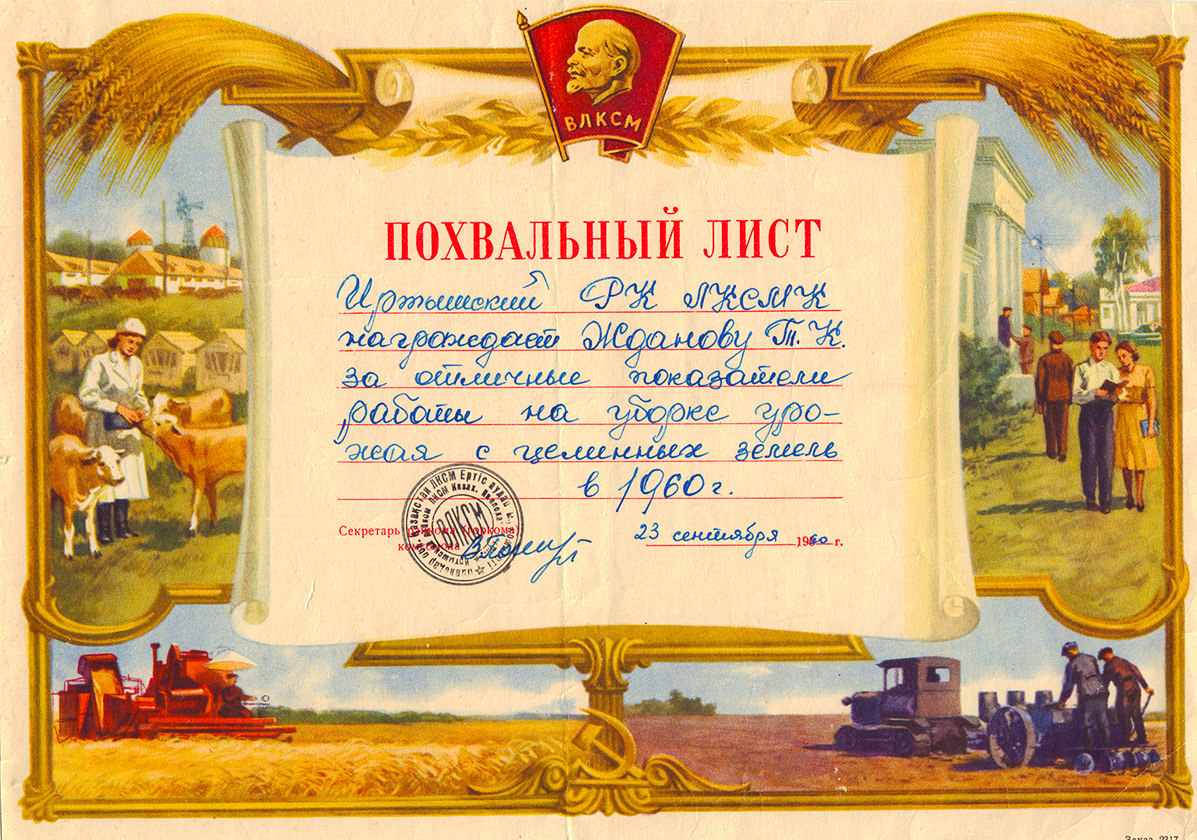 ВЛКСМ
ПОХВАЛЬНЫЙ ЛИСТ
Иртышский РК ЛКСМК
награждает Жданову Т. К.
за отличные показатели
работы на уборке уро-
жая с целинных земель
в 1960 г.
Секретарь райкома (горкома)
комсомола
23 сентября 1960 г.
ВЛКСМ
Заказ 2217